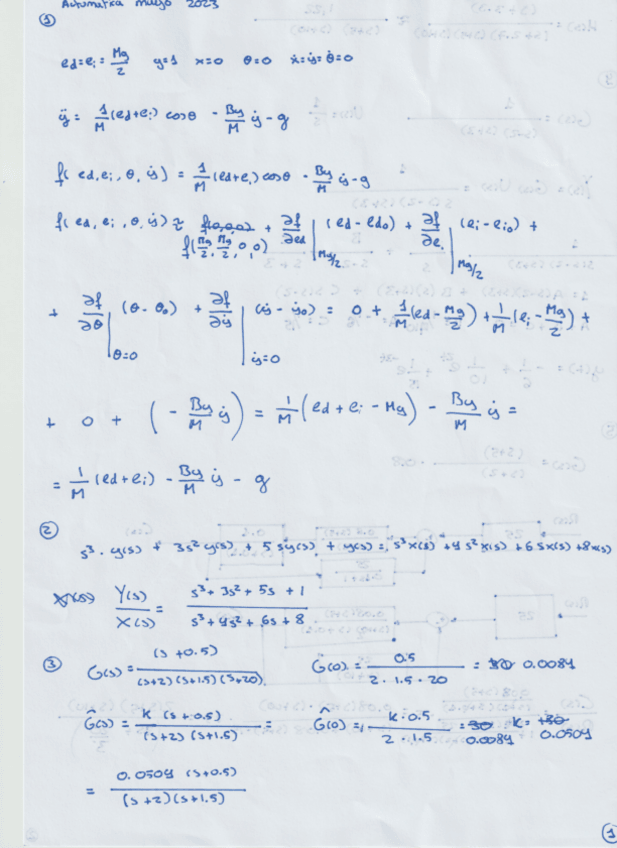 Automatica mayo 2023
①
ed=ei= Mg/2 y=1 x=0 θ=0 ẋ=ẏ=θ̇=0
ÿ = 1/M (ed+ei) cosθ - By/M ẏ - g
f(ed, ei, θ, ẏ) = 1/M (ed+ei) cosθ - By/M ẏ - g
f(ed, ei, θ, ẏ) ≈ f(Mg/2, Mg/2, 0, 0) + ∂f/∂ed |Mg/2 (ed - ed₀) + ∂f/∂ei |Mg/2 (ei - ei₀) +
+ ∂f/∂θ |θ=0 (θ - θ₀) + ∂f/∂ẏ |ẏ=0 (ẏ - ẏ₀) = 0 + 1/M (ed - Mg/2) + 1/M (ei - Mg/2) +
+ 0 + (- By/M ẏ) = 1/M (ed + ei - Mg) - By/M ẏ =
= 1/M (ed + ei) - By/M ẏ - g
②
s³ · y(s) + 3s² y(s) + 5 s y(s) + y(s) = s³ x(s) + 4 s² x(s) + 6 s x(s) + 8 x(s)
Y(s)/X(s) = s³ + 3s² + 5s + 1 / s³ + 4s² + 6s + 8
③ G(s) = (s + 0.5) / (s+2)(s+1.5)(s+20) G(0) = 0.5 / 2 · 1.5 · 20 = 0.0084
Ĝ(s) = k (s + 0.5) / (s+2)(s+1.5) = Ĝ(0) = k · 0.5 / 2 · 1.5 = 0.0084 k = 0.0504
= 0.0504 (s+0.5) / (s+2)(s+1.5)
①